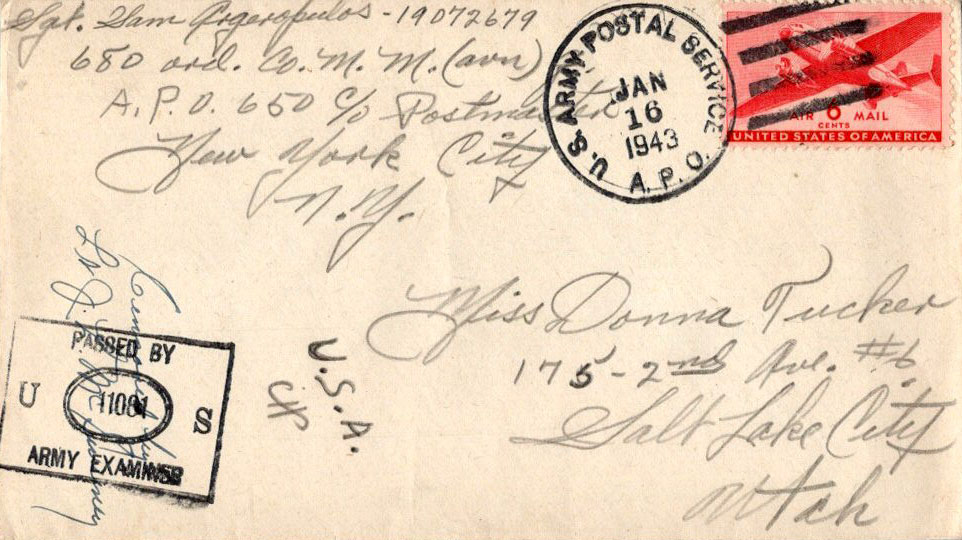 Sgt. Sam Argeropulos - 19072679
680 ord. Co. M. M. (avn)
A.P.O. 650 c/o Postmaster
New York City
N.Y.
U.S. ARMY POSTAL SERVICE
JAN
16
1943
A.P.O.
AIR 6 MAIL
CENTS
UNITED STATES OF AMERICA
Miss Donna Tucker
175 - 2nd Ave. #6.
Salt Lake City
Utah
U.S.A.
PASSED BY
U 11081 S
ARMY EXAMINER
Censored by
Lt J.